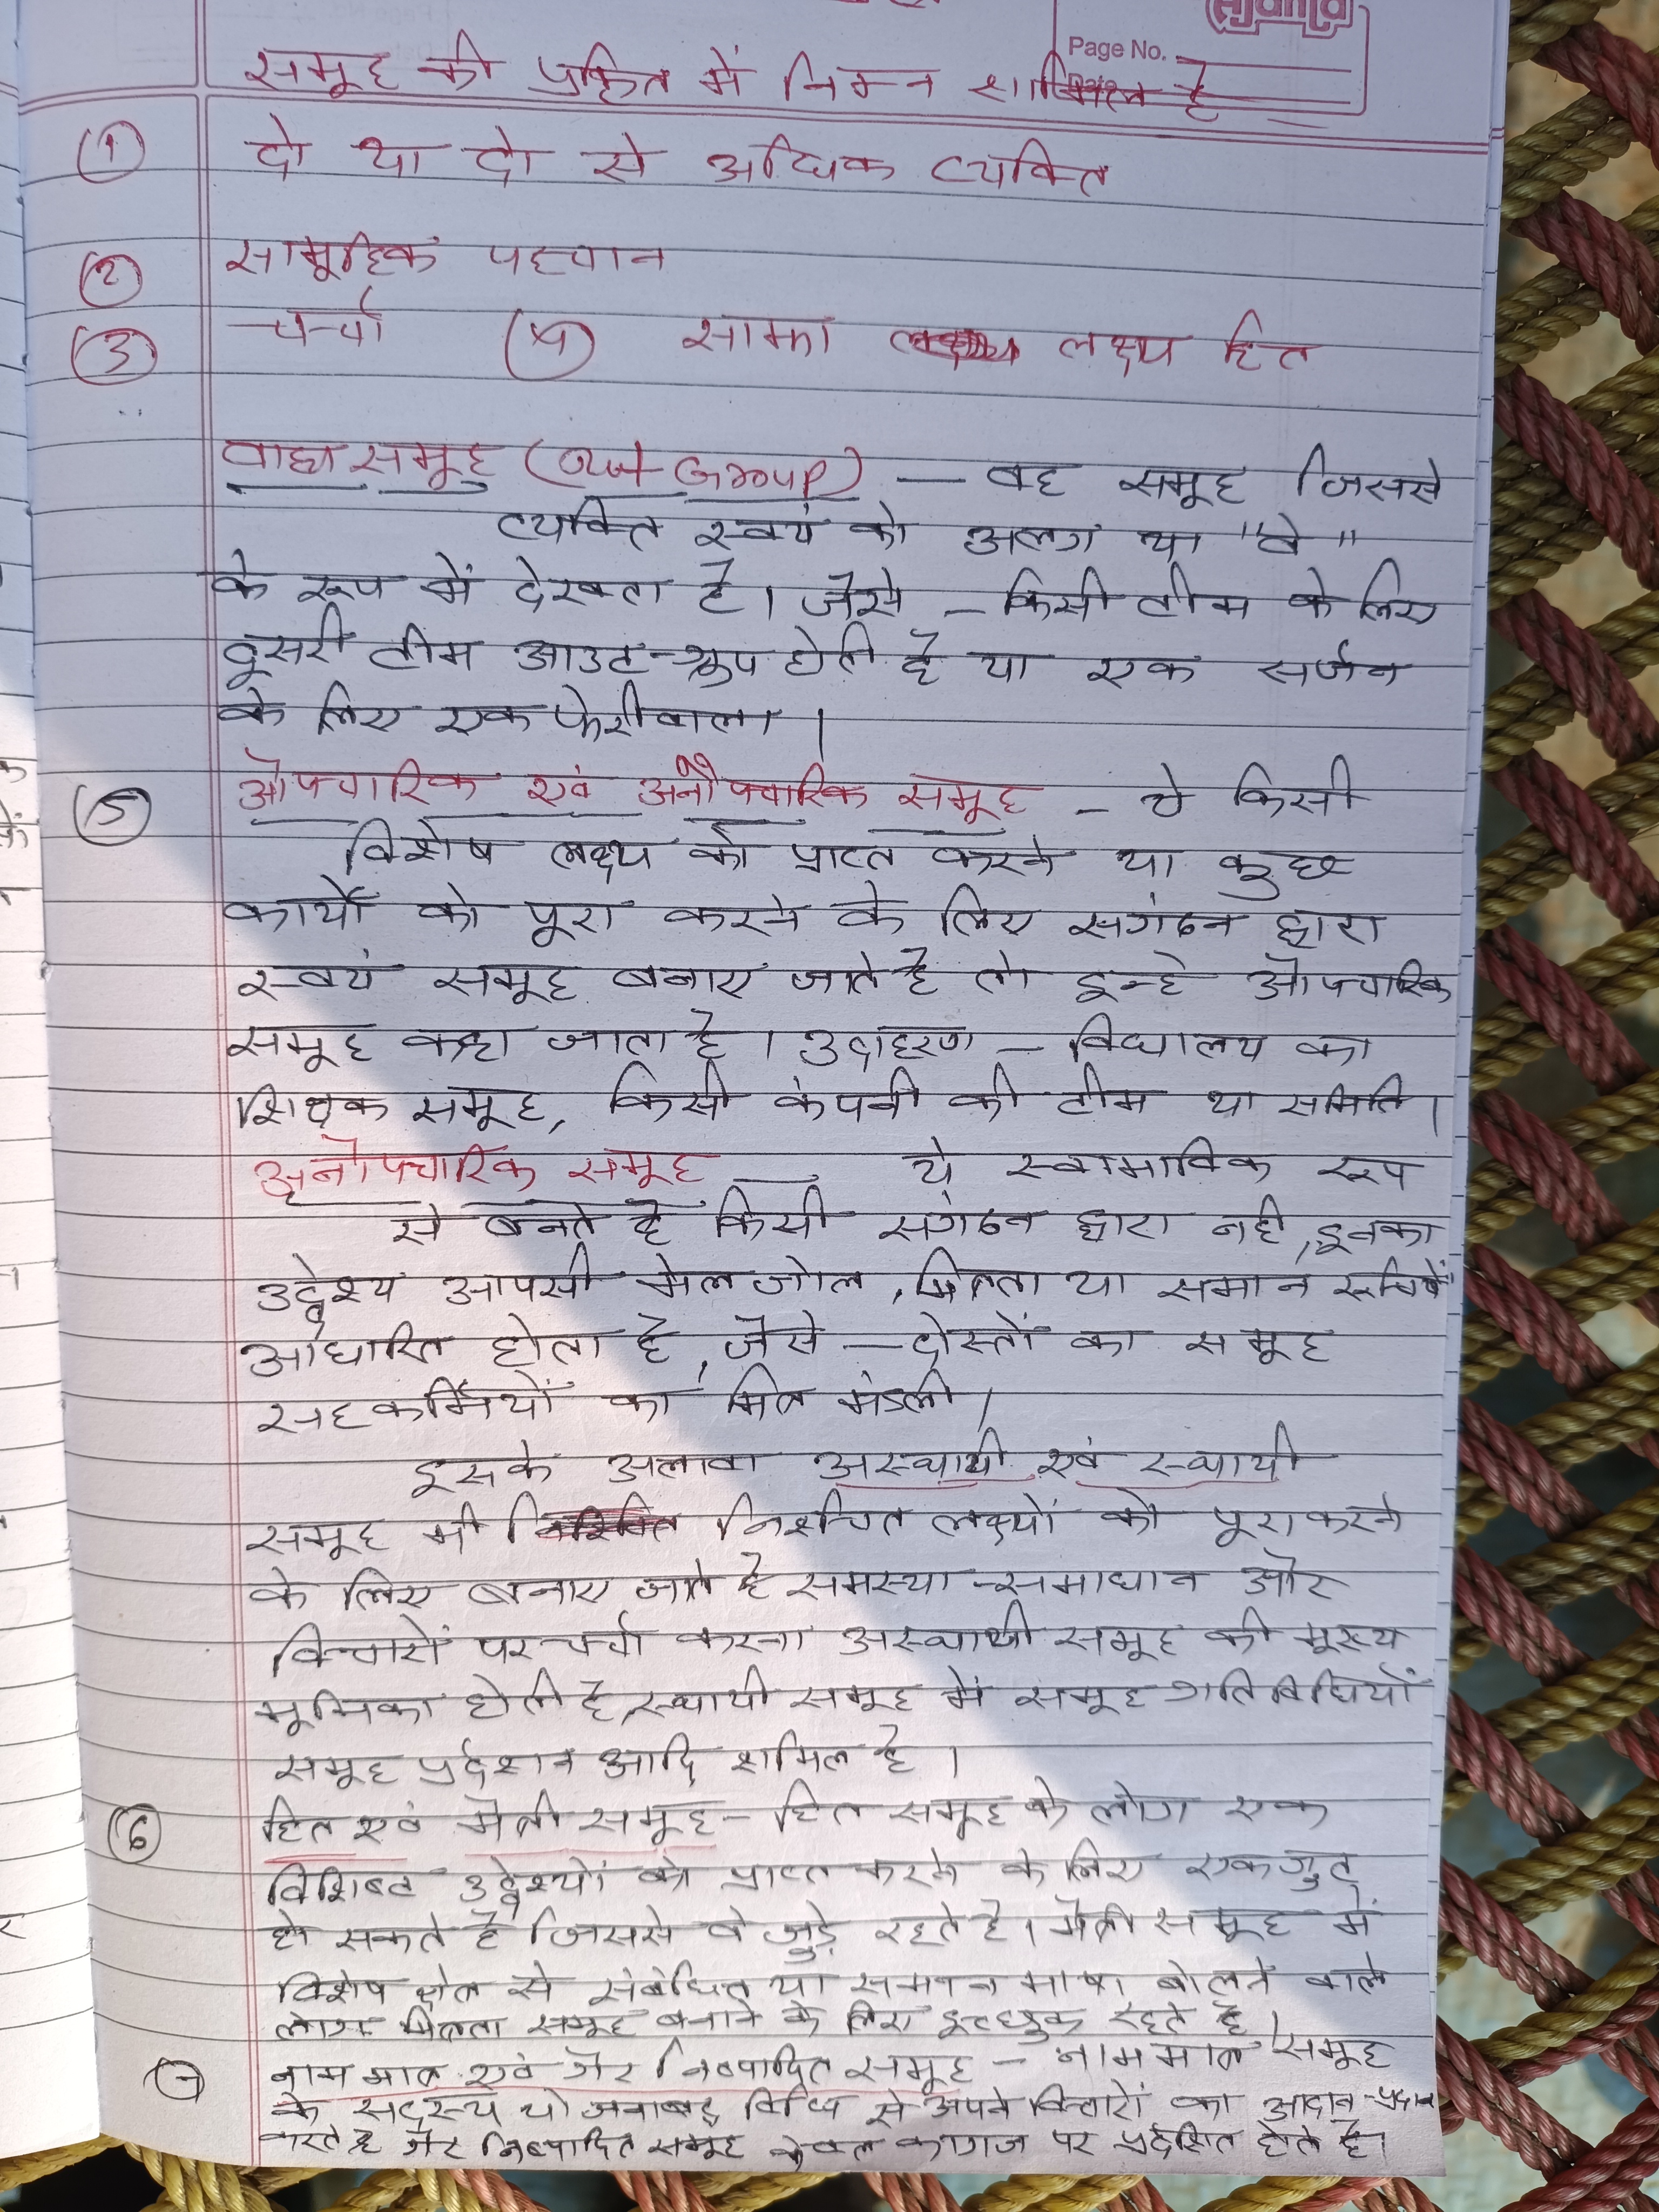 Page No.
Date
समूह की प्रक्रित में निम्न शामिल है
(1) दो या दो से अधिक व्यक्ति
(2) सामूहिक पहचान
(3) चर्चा (4) साझा लक्ष्य हित
वाह्य समूह (Out Group) — वह समूह जिससे
व्यक्ति स्वयं को अलग या "वे"
के रूप में देखता है। जैसे – किसी टीम के लिए
दूसरी टीम आउट-ग्रुप होती है या एक सर्जन
के लिए एक फेरीवाला।
(5) औपचारिक एवं अनौपचारिक समूह – ये किसी
विशेष लक्ष्य को प्राप्त करने या कुछ
कार्यों को पूरा करने के लिए सगंठन द्वारा
स्वयं समूह बनाए जाते है तो इन्हे औपचारिक
समूह कहा जाता है। उदाहरण – विद्यालय का
शिक्षक समूह, किसी कंपनी की टीम या समिति।
अनौपचारिक समूह – ये स्वाभाविक रूप
से बनते है किसी सगंठन द्वारा नही, इनका
उद्देश्य आपसी मेल जोल, मित्रता या समान रूचि में
आधारित होता है, जैसे – दोस्तों का समूह
सहकर्मियों का मित्र मंडली।
इसके अलावा अस्थायी एवं स्थायी
समूह भी निश्चित लक्ष्यों को पूरा करने
के लिए बनाए जाते है समस्या-समाधान और
विचारों पर चर्चा करना अस्थायी समूह की मुख्य
भूमिका होती है, स्थायी समूह में समूह गतिविधियाँ
समूह प्रर्दशन आदि शामिल है।
(6) हित एवं मैत्री समूह – हित समूह के लोग एक
विशिष्ट उद्देश्यों को प्राप्त करने के लिए एकजुट
हो सकते है जिससे वे जुड़े रहते है। मैत्री समूह में
विशेष क्षेत्र से संबंधित या समान भाषा बोलने वाले
लोग मित्रता समूह बनाने के लिए इच्छुक रहते है।
(7) नाम मात्र एवं गैर निष्पादित समूह – नाम मात्र समूह
के सदस्य योजनाबद्ध विधि से अपने विचारों का आदान-प्रदान
करते है गैर निष्पादित समूह केवल कागज पर प्रर्दशित होते है।